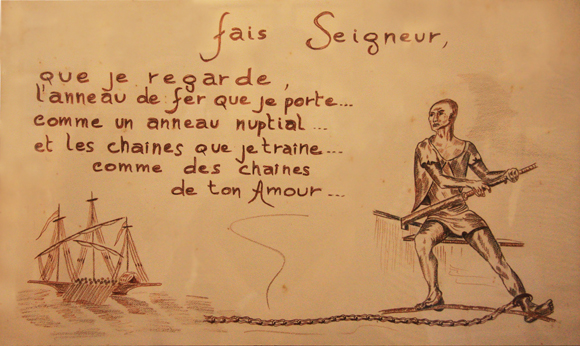 fais Seigneur,
que je regarde,
l'anneau de fer que je porte...
comme un anneau nuptial...
et les chaines que je traine...
comme des chaines
de ton Amour...